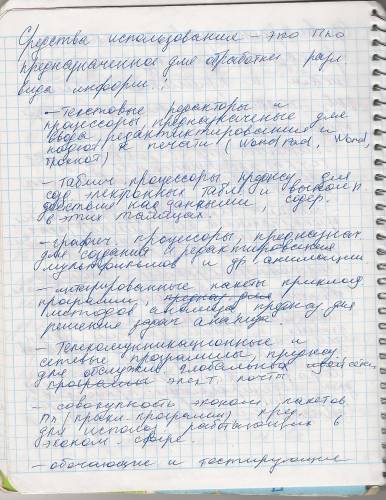 Средства использования – это ППО
предназначенное для обработки разл
вида информ:
– Текстовые редакторы и
процессоры, предназначенные для
ввода, редактиктировсния и
подгот к печати (Word Pad, Word,
– Таблич процессоры, предназ для
созд электронных табл и выполн
действия над данными, содер.
в этих таблицах.
– графич процессоры, предназнач
для создания и редактирования
мультфильмов и др анимации
– интегрированные пакеты приклад
программ,
методов анализа, предназ для
решения задач анализа.
– Телекоммуникационные и
сетевые программы, предназ
для обслужив глобальных сетей,
программы элект. почты
– совокупность эконом. пакетов
ПП (прикл. программ) пред.
для использ работающих в
эконом. сфере.
– обучающие и тестирующие